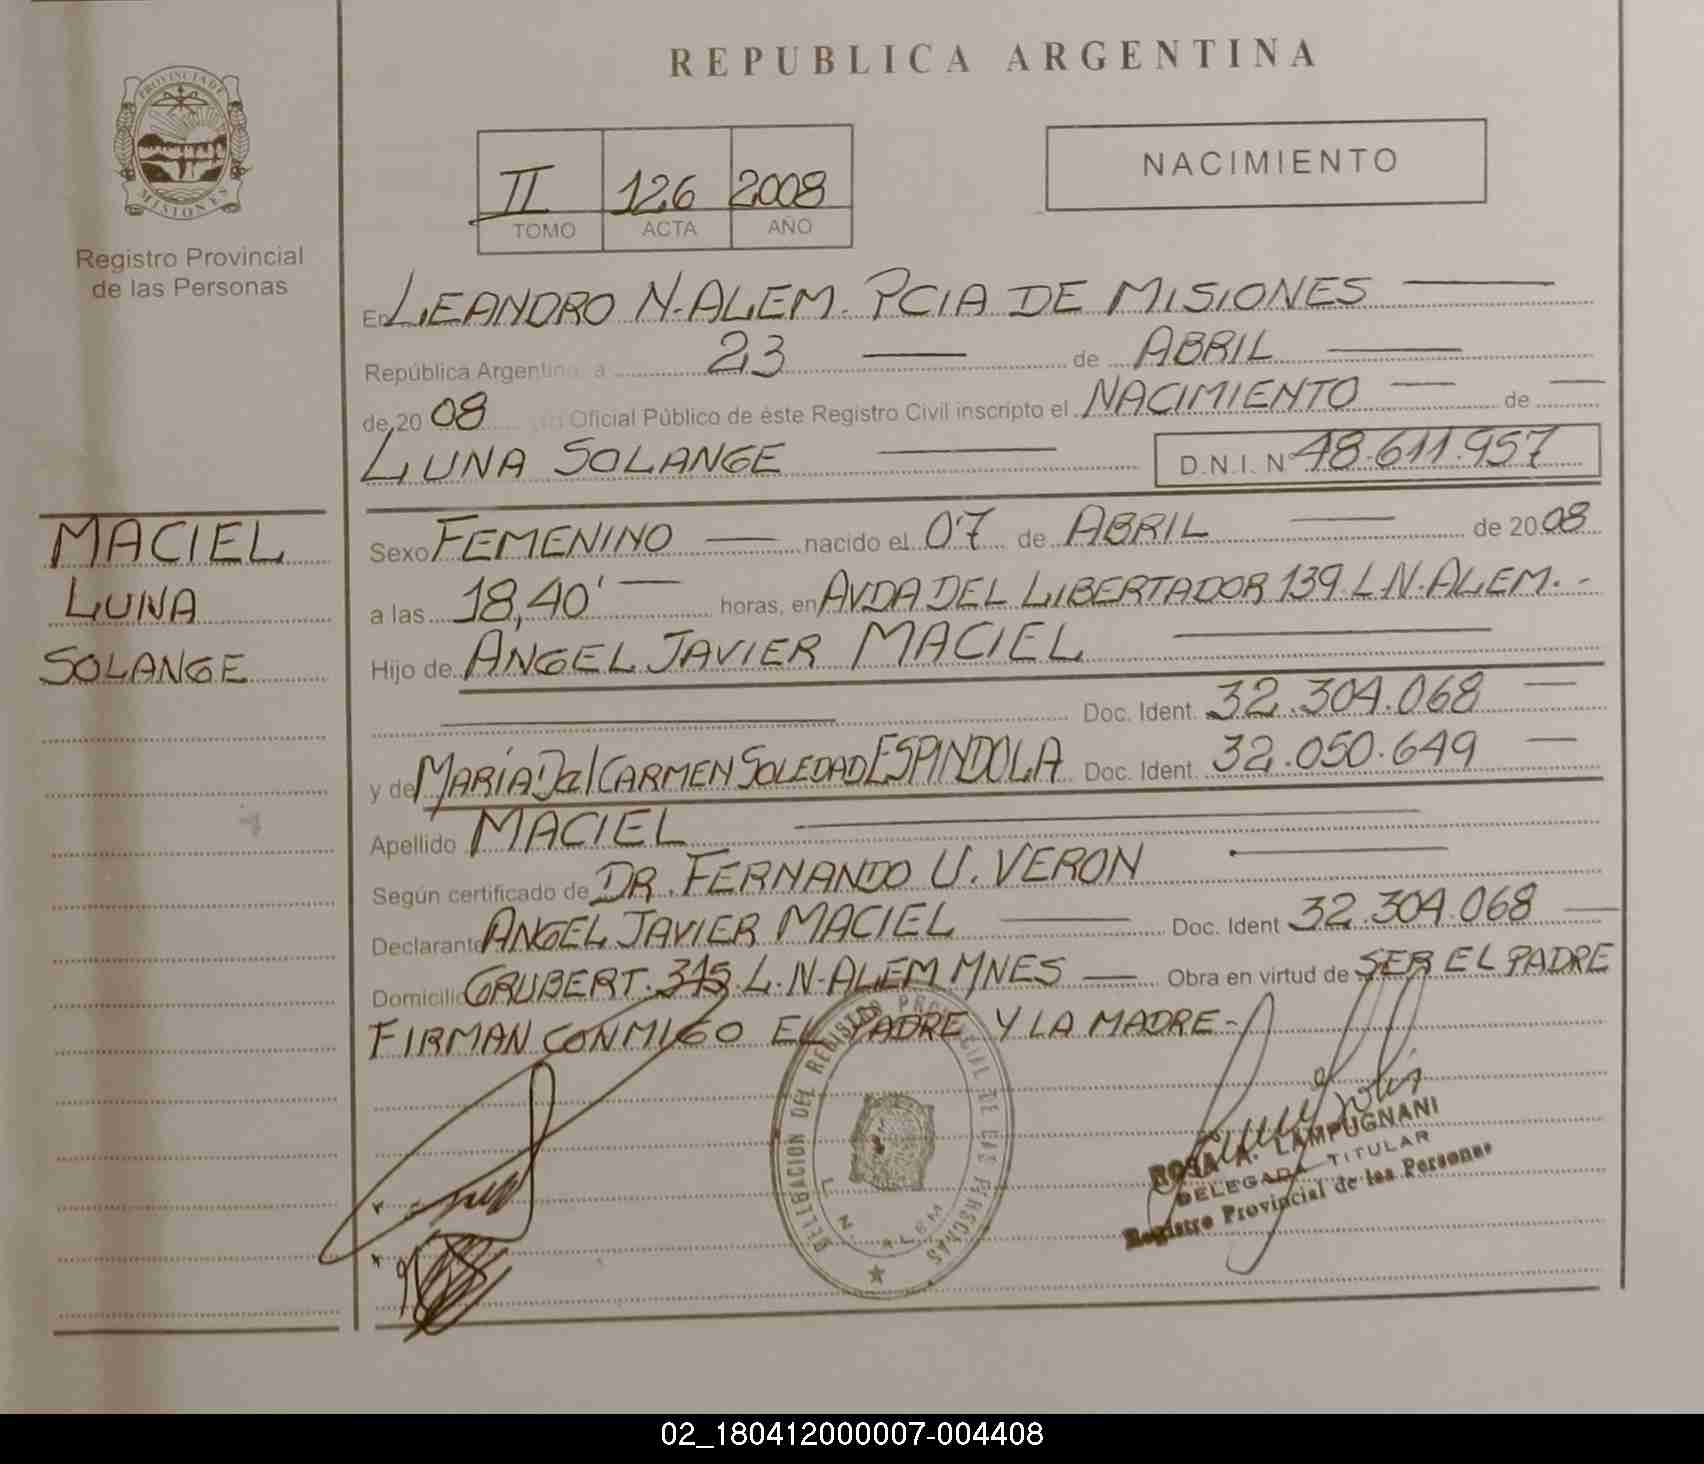 REPUBLICA ARGENTINA
PROVINCIA DE
MISIONES
Registro Provincial
de las Personas
NACIMIENTO
II 126 2008
TOMO ACTA AÑO
En LEANDRO N. ALEM. PCIA DE MISIONES
República Argentina a 23 de ABRIL
de 20 08 Oficial Público de éste Registro Civil inscripto el NACIMIENTO de
LUNA SOLANGE D.N.I. N 48.611.957
MACIEL
LUNA
SOLANGE
Sexo FEMENINO nacido el 07 de ABRIL de 20 08
a las 18,40' horas, en AVDA DEL LIBERTADOR 139. L.N. ALEM.-
Hijo de ANGEL JAVIER MACIEL
Doc. Ident. 32.304.068
y de MARÍA Del CARMEN SOLEDAD ESPINDOLA Doc. Ident. 32.050.649
Apellido MACIEL
Según certificado de DR. FERNANDO U. VERON
Declarante ANGEL JAVIER MACIEL Doc. Ident 32.304.068
Domicilio GRUBERT. 315. L.N-ALEM. MNES Obra en virtud de SER EL PADRE
FIRMAN CONMIGO EL PADRE Y LA MADRE-
DELEGACION DEL REGISTRO PROVINCIAL DE LAS PERSONAS
L. N. ALEM
ROSA A. LAMPUGNANI
DELEGADA TITULAR
Registro Provincial de las Personas
02_180412000007-004408